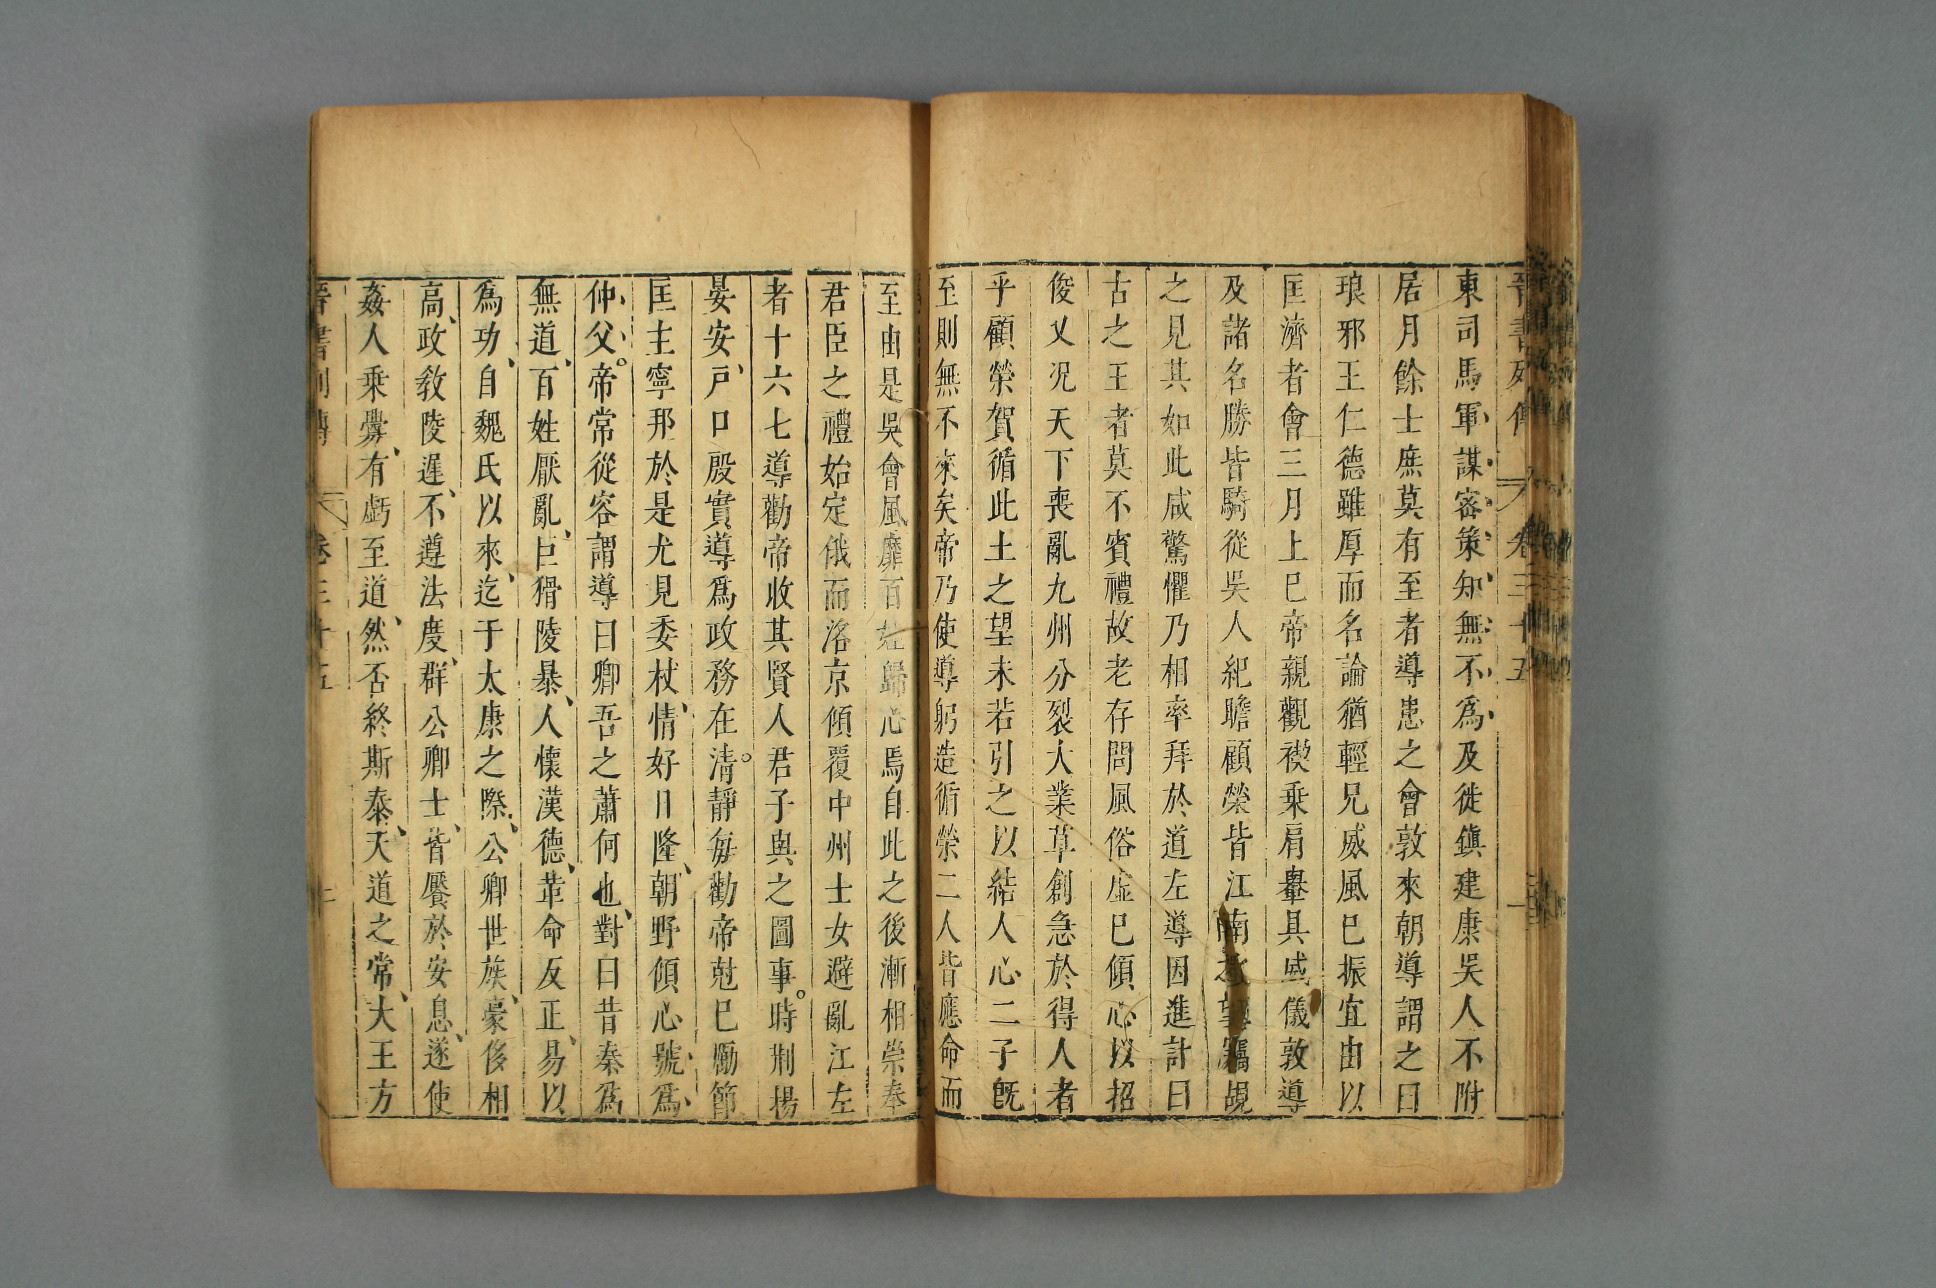 晉書列傳 卷三十五
東司馬軍謀密策知無不爲及徙鎭建康吳人不附
居月餘士庶莫有至者導患之會敦來朝導謂之曰
琅邪王仁德雖厚而名論猶輕兄威風已振宜由以
匡濟者會三月上巳帝親觀禊乗肩轝具威儀敦導
及諸名勝皆騎從吳人紀瞻顧榮皆江南之望竊覘
之見其如此咸驚懼乃相率拜於道左導因進計曰
古之王者莫不賓禮故老存問風俗虛已傾心以招
俊乂况天下喪亂九州分裂大業草創急於得人者
乎顧榮賀循此土之望未若引之以結人心二子旣
至則無不來矣帝乃使導躬造循榮二人皆應命而
至由是吳會風靡百姓歸心焉自此之後漸相崇奉
君臣之禮始定俄而洛京傾覆中州士女避亂江左
者十六七導勸帝收其賢人君子與之圖事。時荆揚
晏安、戸口殷實導爲政務在清。靜每勸帝尅巳勵節
匡主寧邦於是尤見委杖、情好日隆、朝野傾心號爲、
仲、父、。帝常從容謂導曰卿吾之蕭何也、對曰昔秦爲
無道、百姓厭亂、巨猾陵暴、人懷漢德、革命反正、易以
爲功、自魏氏以來、迄于太康之際、公卿世族、豪侈相
高、政敎陵遲、不遵法度、群公卿士、皆饜於安息、遂使
姦人乗釁、有虧至道、然否終斯泰、天道之常、大王方
晉書列傳 卷三十五